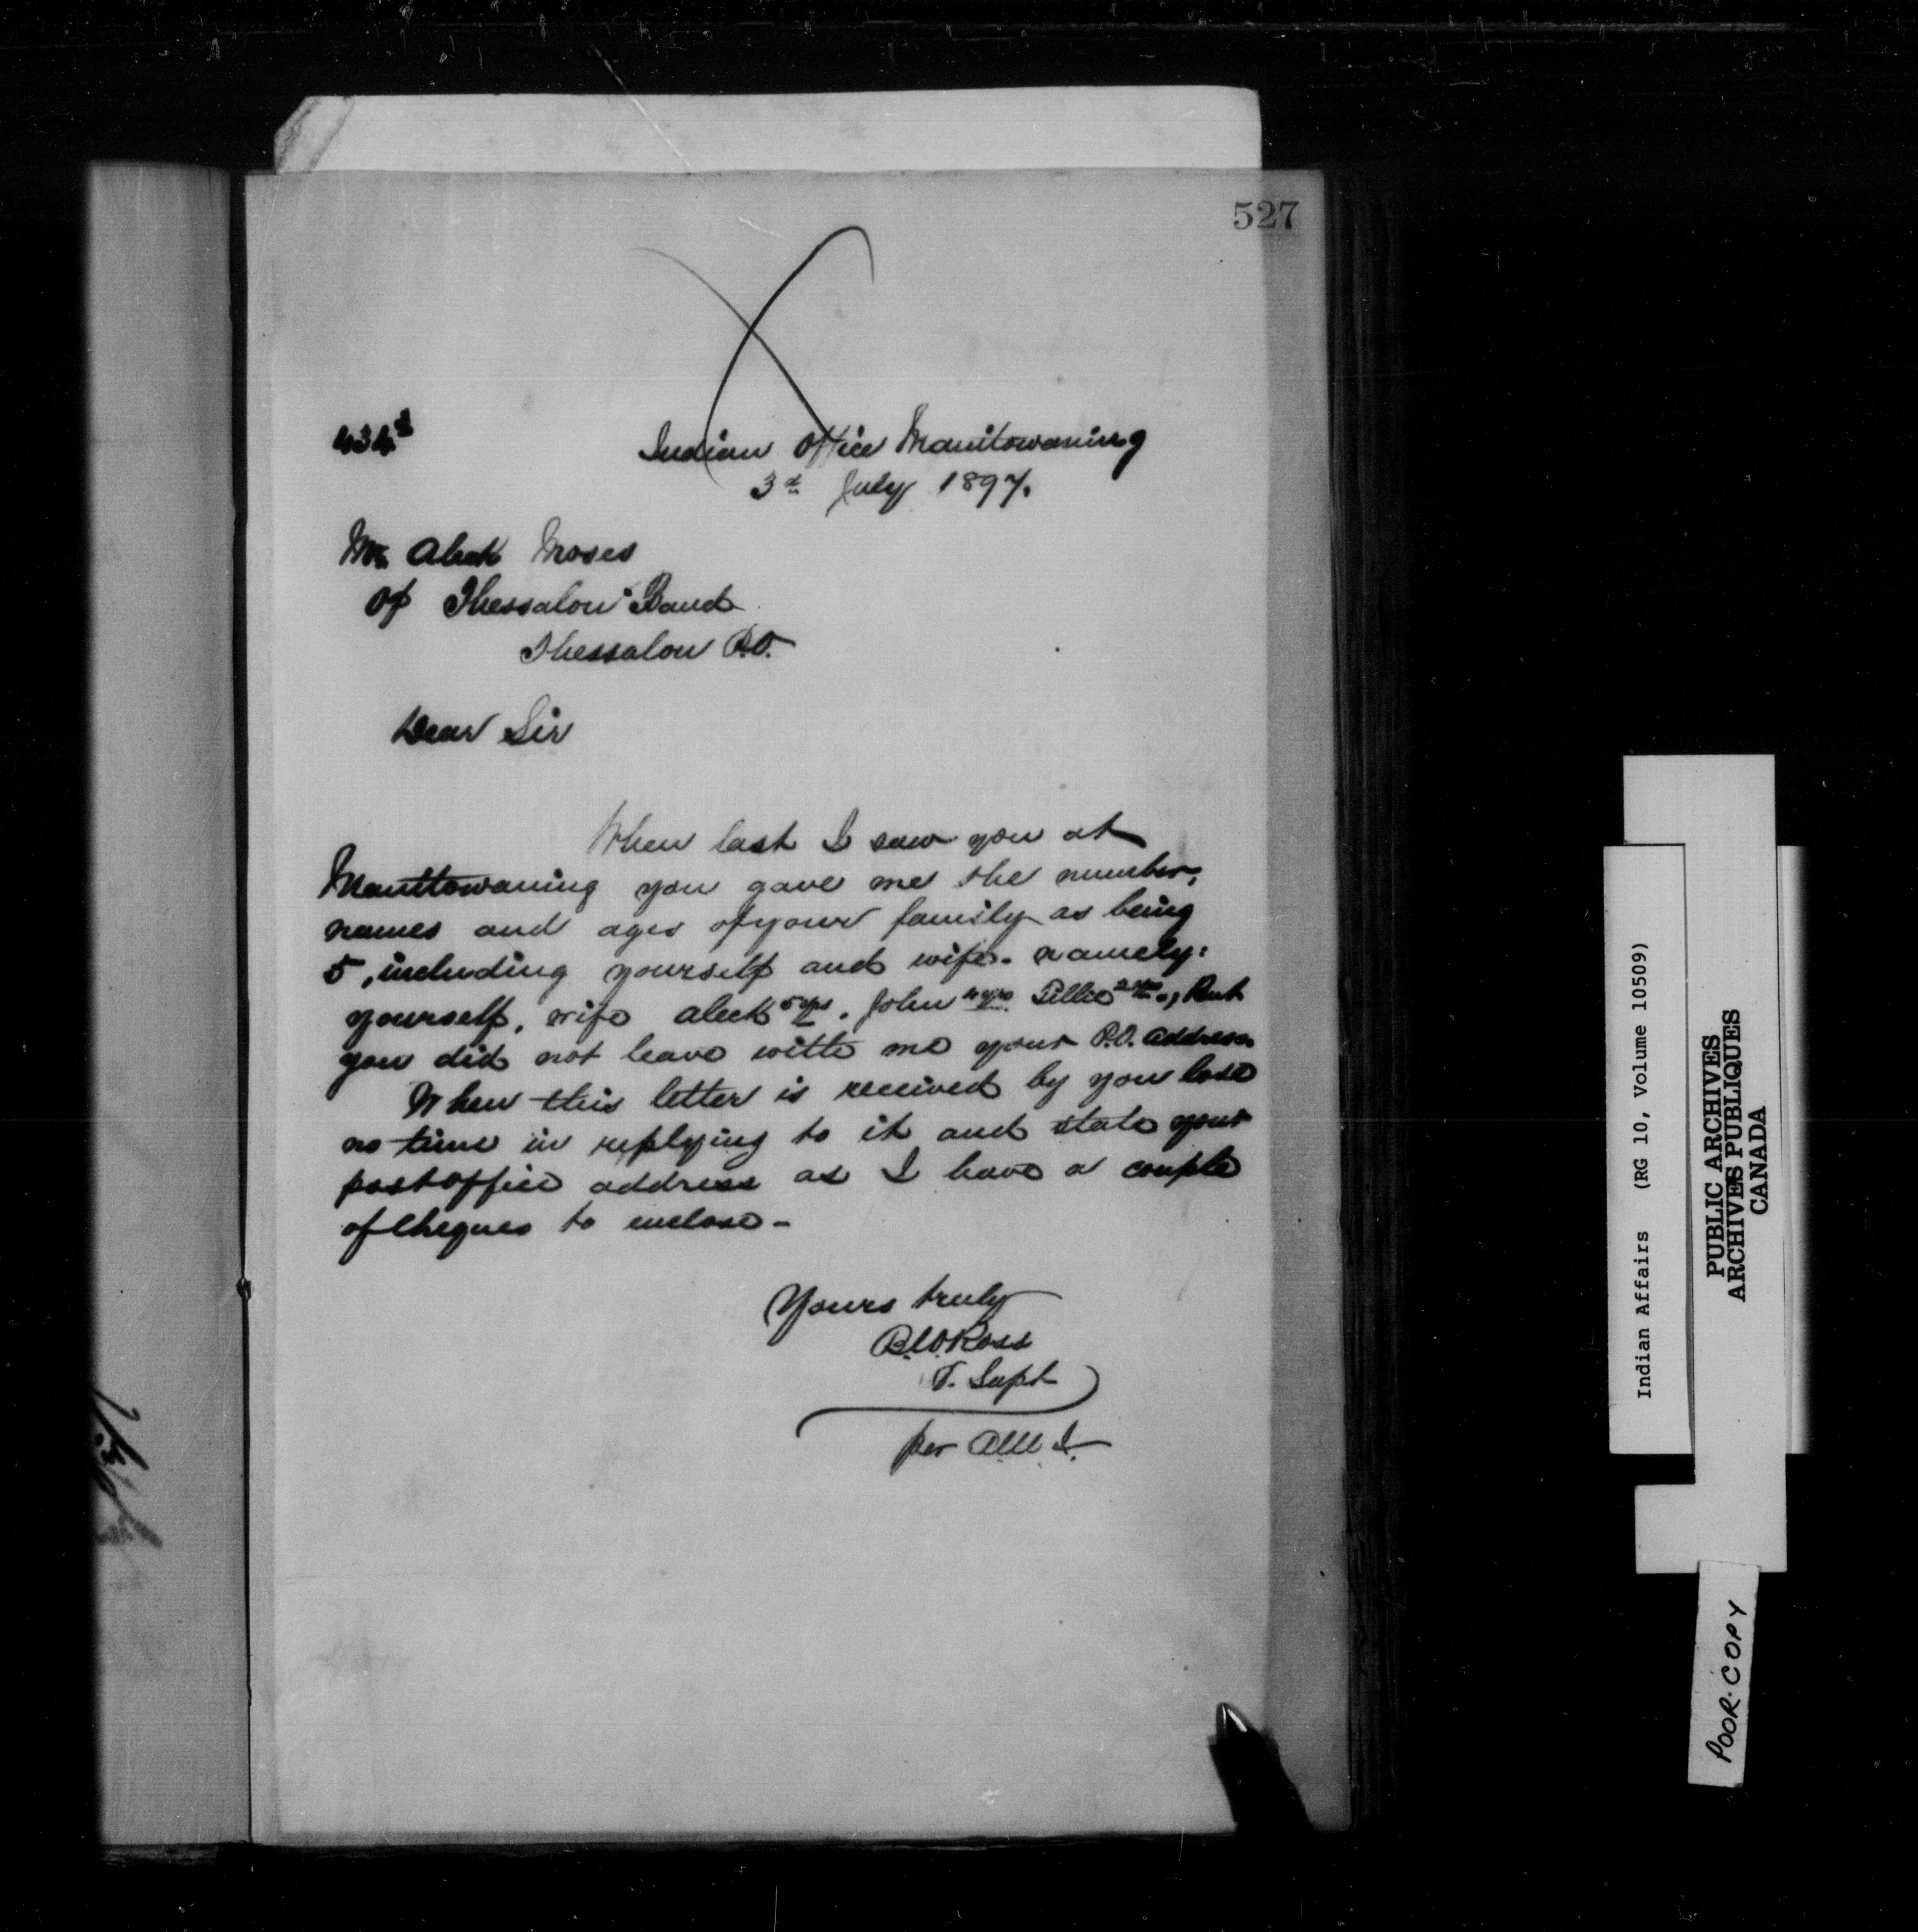 527
434
Indian Office Manitowaning
3d July 1897.
Mr. Aleck Moses
Of Thessalon Band
Thessalon P.O.
Dear Sir
When last I saw you at
Manitowaning you gave me the number,
names and ages of your family as being
5, including yourself and wife. namely:
yourself, wife Aleck 5 yrs, John 4 yrs Tillie 2 yrs., But
you did not leave with me your P.O. address.
When this letter is received by you lose
no time in replying to it and state your
post office address as I have a couple
of Cheques to enclose -
Yours truly
B.W. Ross
T. Supt
per
Indian Affairs (RG 10, Volume 10509)
PUBLIC ARCHIVES
ARCHIVES PUBLIQUES
CANADA
POOR COPY